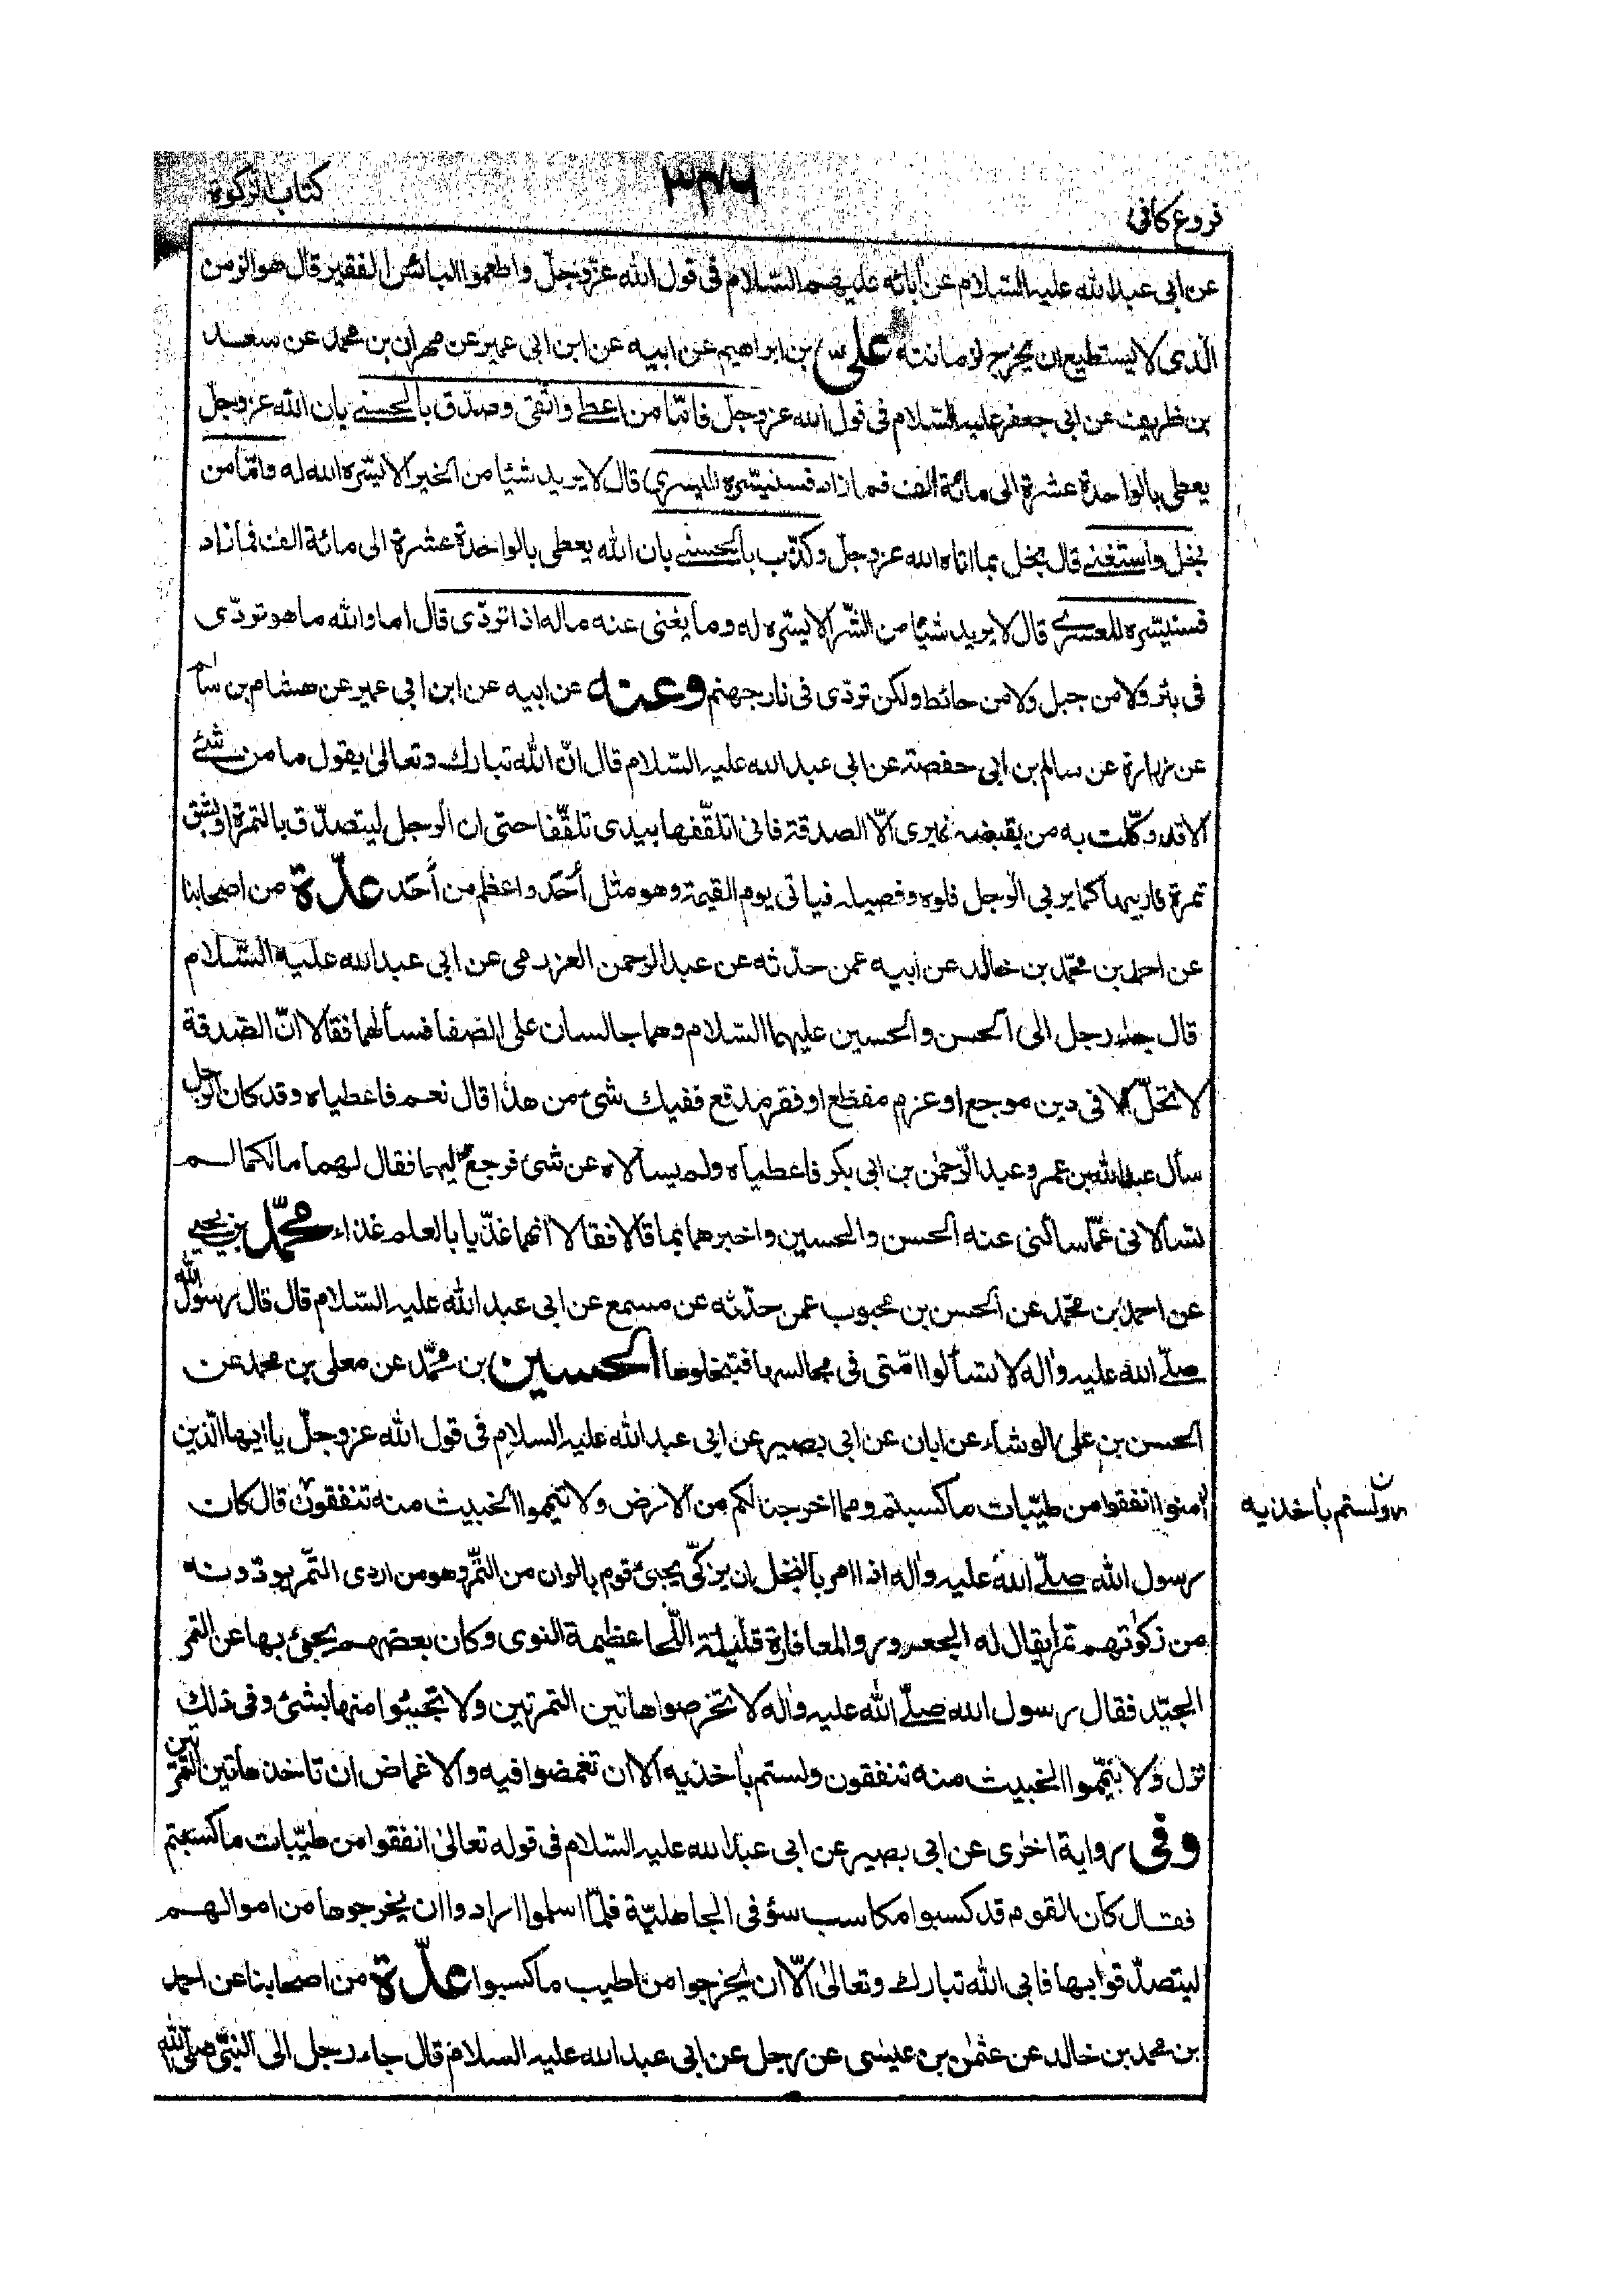 فروع كافى
٣٧٦
كتاب الزكوة
عن ابى عبد الله عليه السّلام عن آبائه عليهم السّلام فى قول الله عزّوجلّ واطعموا البائس الفقير قال هو الزمن
الّذى لا يستطيع ان يخرج لزمانته علىّ بن ابراهيم عن ابيه عن ابن ابى عمير عن مهران بن محمد عن سعد
بن ظريف عن ابى جعفر عليه السّلام فى قول الله عزوجلّ فامّا من اعطى واتّقى وصدّق بالحسنى بان الله عزوجلّ
يعطى بالواحدة عشرة الى مائة الف فما زاد فسنيسّره لليسرى قال لا يريد شيئا من الخير الا يسّره الله له وامّا من
بخل واستغنى قال بخل بما اتاه الله عزوجلّ وكذّب بالحسنى بان الله يعطى بالواحدة عشرة الى مائة الف فما زاد
فسنيسّره للعسرى قال لا يريد شيئا من الشّر الا يسّره له وما يغنى عنه ماله اذا تردّى قال اما والله ما هو تردّى
فى بئر ولا من جبل ولا من حائط ولكن تردّى فى نار جهنم وعنه عن ابيه عن ابن ابى عمير عن هشام بن سالم
عن زرارة عن سالم بن ابى حفصة عن ابى عبد الله عليه السّلام قال انّ الله تبارك وتعالى يقول ما من شئ
الا قد وكّلت به من يقبضه غيرى الّا الصدقة فانى اتلقّفها بيدى تلقّفا حتى ان الرجل ليتصدّق بالتمرة او بشق
تمرة فاربيها كما يربى الرّجل فلوه وفصيله فياتى يوم القيمة وهو مثل أحد واعظم من أحد عدّة من اصحابنا
عن احمد بن محمّد بن خالد عن ابيه عمن حدّثه عن عبد الرحمن العزرمى عن ابى عبد الله عليه السّلام
قال جاء رجل الى الحسن والحسين عليهما السّلام وهما جالسان على الصّفا فسألهما فقالا انّ الصّدقة
لا تحلّ الا فى دين موجع او غرم مفظع او فقر مدقع ففيك شئ من هذا قال نعم فاعطياه وقد كان الرجل
سأل عبد الله بن عمر وعبد الرّحمن بن ابى بكر فاعطياه ولم يسألاه عن شئ فرجع اليهما فقال لهما ما لكما لم
تسألانى عمّا سألنى عنه الحسن والحسين واخبرهما بما قالا فقالا انهما غذّيا بالعلم غذاء محمّد بن يحيى
عن احمد بن محمّد عن الحسن بن محبوب عمن حدّثه عن مسمع عن ابى عبد الله عليه السّلام قال قال رسول الله
صلّى الله عليه واله لا تسألوا امّتى فى مجالسها فتبخلوها الحسين بن محمّد عن معلى بن محمد عن
الحسن بن على الوشاء عن ابان عن ابى بصير عن ابى عبد الله عليه السلام فى قول الله عزوجلّ يا ايها الّذين
آمنوا انفقوا من طيّبات ما كسبتم ومما اخرجنا لكم من الارض ولا تيمموا الخبيث منه تنفقون قال كان
ولستم بآخذيه ن
رسول الله صلّى الله عليه واله اذا امر بالنخل ان يزكّى يجئ قوم بالوان من التّمر وهو من اردى التّمر يؤدّونه
من زكوتهم تمرا يقال له الجعرور والمعافارة قليلة اللّحا عظيمة النوى وكان بعضهم يجئ بها عن التمر
الجيّد فقال رسول الله صلّى الله عليه واله لا تخرصوا هاتين التمرتين ولا تجيبئوا منها بشئ وفى ذلك
نزل ولا تيمّموا الخبيث منه تنفقون ولستم بآخذيه الا ان تغمضوا فيه والاغماض ان تاخذ هاتين التمرتين
وفى رواية اخرى عن ابى بصير عن ابى عبد الله عليه السّلام فى قوله تعالى انفقوا من طيّبات ما كسبتم
فقال كان القوم قد كسبوا مكاسب سؤ فى الجاهليّة فلمّا اسلموا ارادوا ان يخرجوها من اموالهم
ليتصدّقوا بها فابى الله تبارك وتعالى الّا ان يخرجوا من اطيب ما كسبوا عدّة من اصحابنا عن احمد
بن محمد بن خالد عن عثمن بن عيسى عن رجل عن ابى عبد الله عليه السلام قال جاء رجل الى النبّى صلى الله